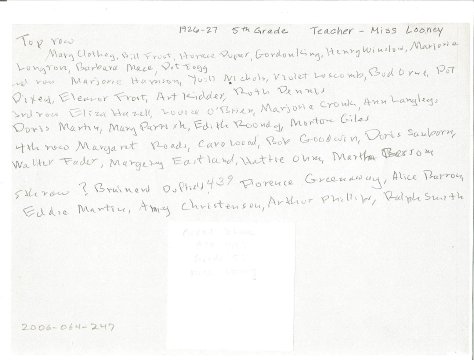 1926-27 5th Grade Teacher - Miss Looney
Top row
Mary Clothey, Bill Frost, Horace Dyer, Gordon King, Henry Winslow, Marjorie
Langton, Barbara Mace, Dot Fogg
2nd row Marjorie Harrison, Nichols, Violet Luscomb, Bud Orne, Dot
Dixed, Eleanor Frost, Art Kidder, Ruth Dennis
3rd row Eliza Hazell, Louise O'Brien, Marjorie Cronk, Ann Langley,
Doris Martin, Mary Parrish, Edith Roundy, Morton Giles
4th row Margaret Roads, Carol Bob Goodwin, Doris Sanborn,
Walter Fader, Margery Eastland, Hattie Orne, Martha Bessom
5th row ? Brainerd Florence Greenaway, Alice Barrow,
Eddie Martin, Amy Christensen, Arthur Phillips, Ralph Smith
2006-064-247